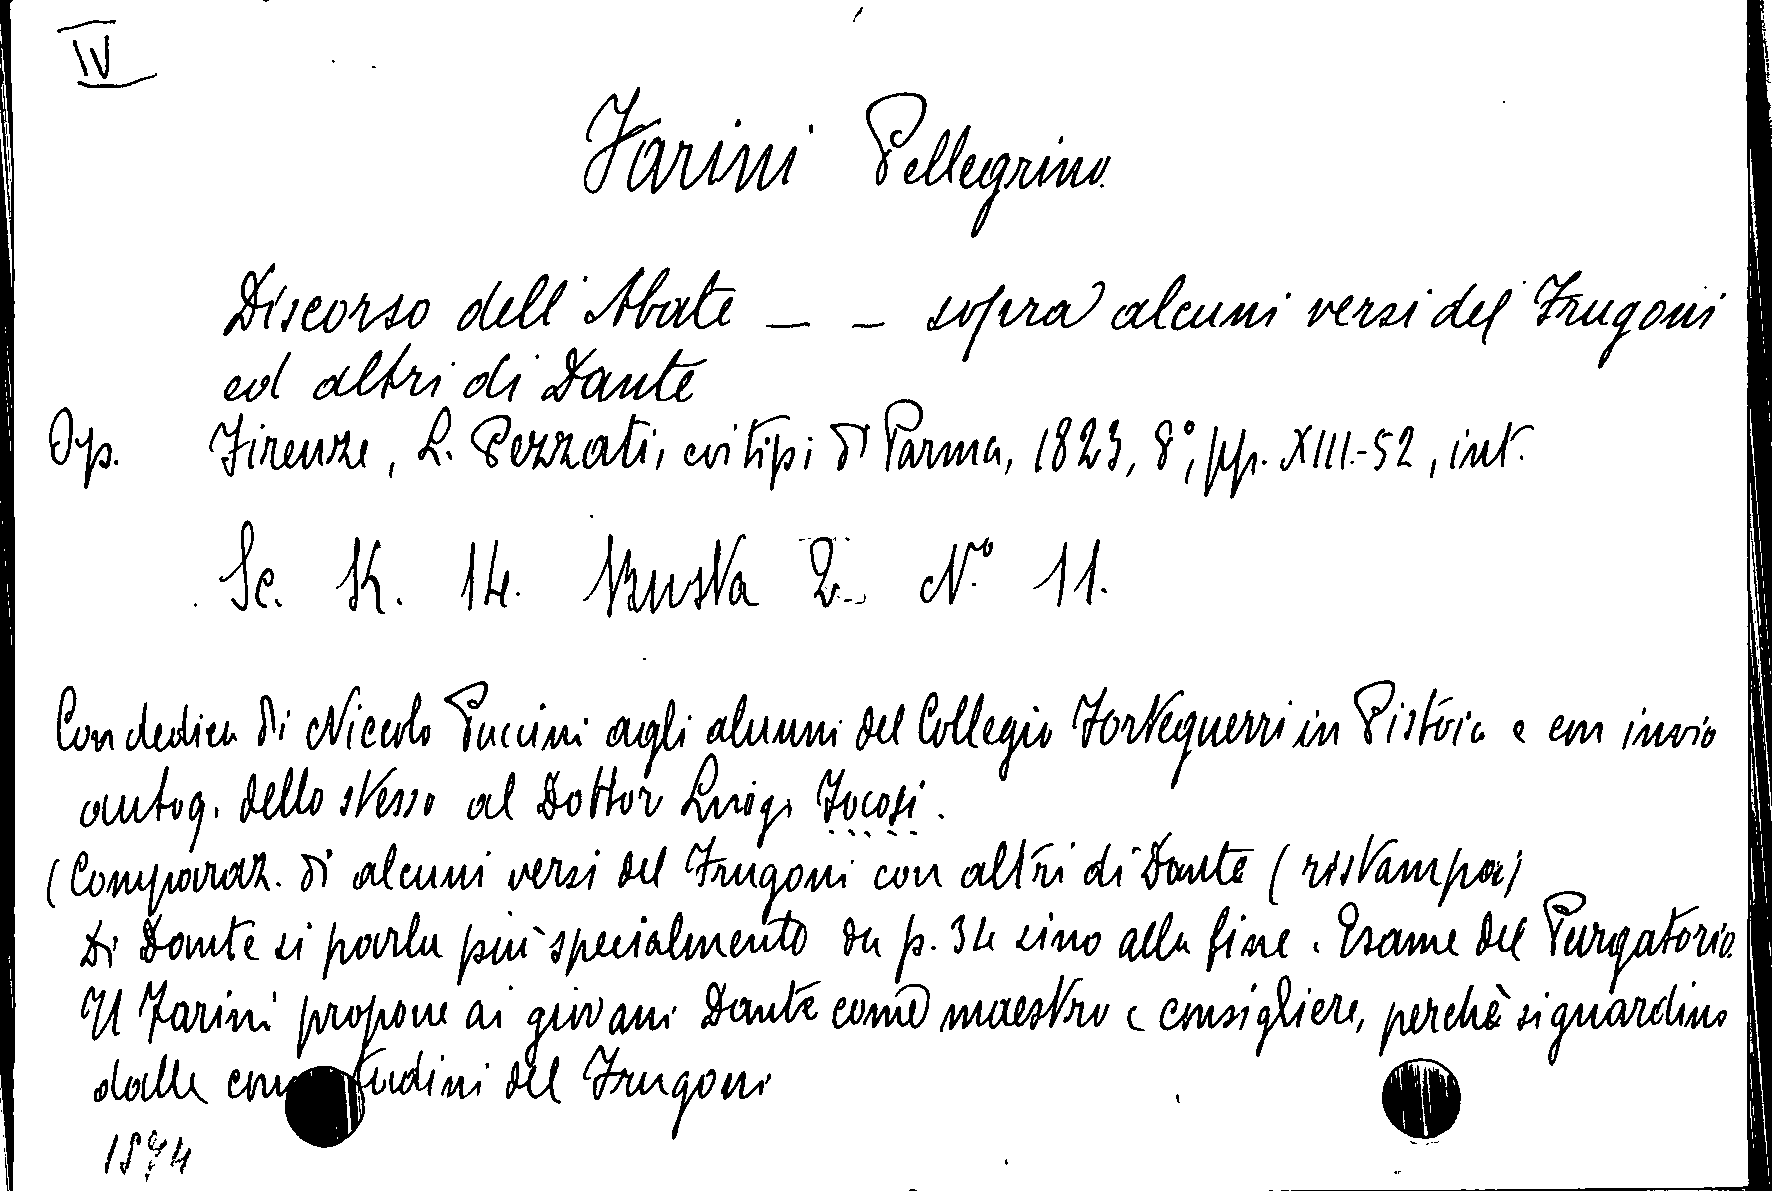 IV
Farini Pellegrino.
Discorso dell'Abate _ _ sopra alcuni versi del Frugoni
ed altri di Dante
Op. Firenze, L. Pezzati, coi tipi di Parma, 1823, 8°, pp. XIII.-52, int.
Sc. K. 14. Busta 2 N.° 11.
Con dedica di Niccolo Puccini agli alunni del Collegio Forteguerri in Pistoia e con invio
autog. dello stesso al Dottor Luigi Focosi.
(Comparaz. di alcuni versi del Frugoni con altri di Dante (ristampa)
Di Dante si parla più specialmente da p. 34 sino alla fine. Esame del Purgatorio.
Il Farini propone ai giovani Dante come maestro e consigliere, perchè si guardino
dalle del Frugoni
1874